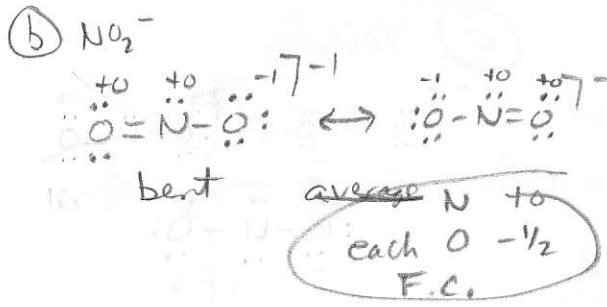 (b) NO₂⁻
+0 +0 -1 ]-1 -1 +0 +0 ]-
:Ö=N̈-Ö: ↔ :Ö-N̈=Ö
bent average N +0
each O -1/2
F.C.